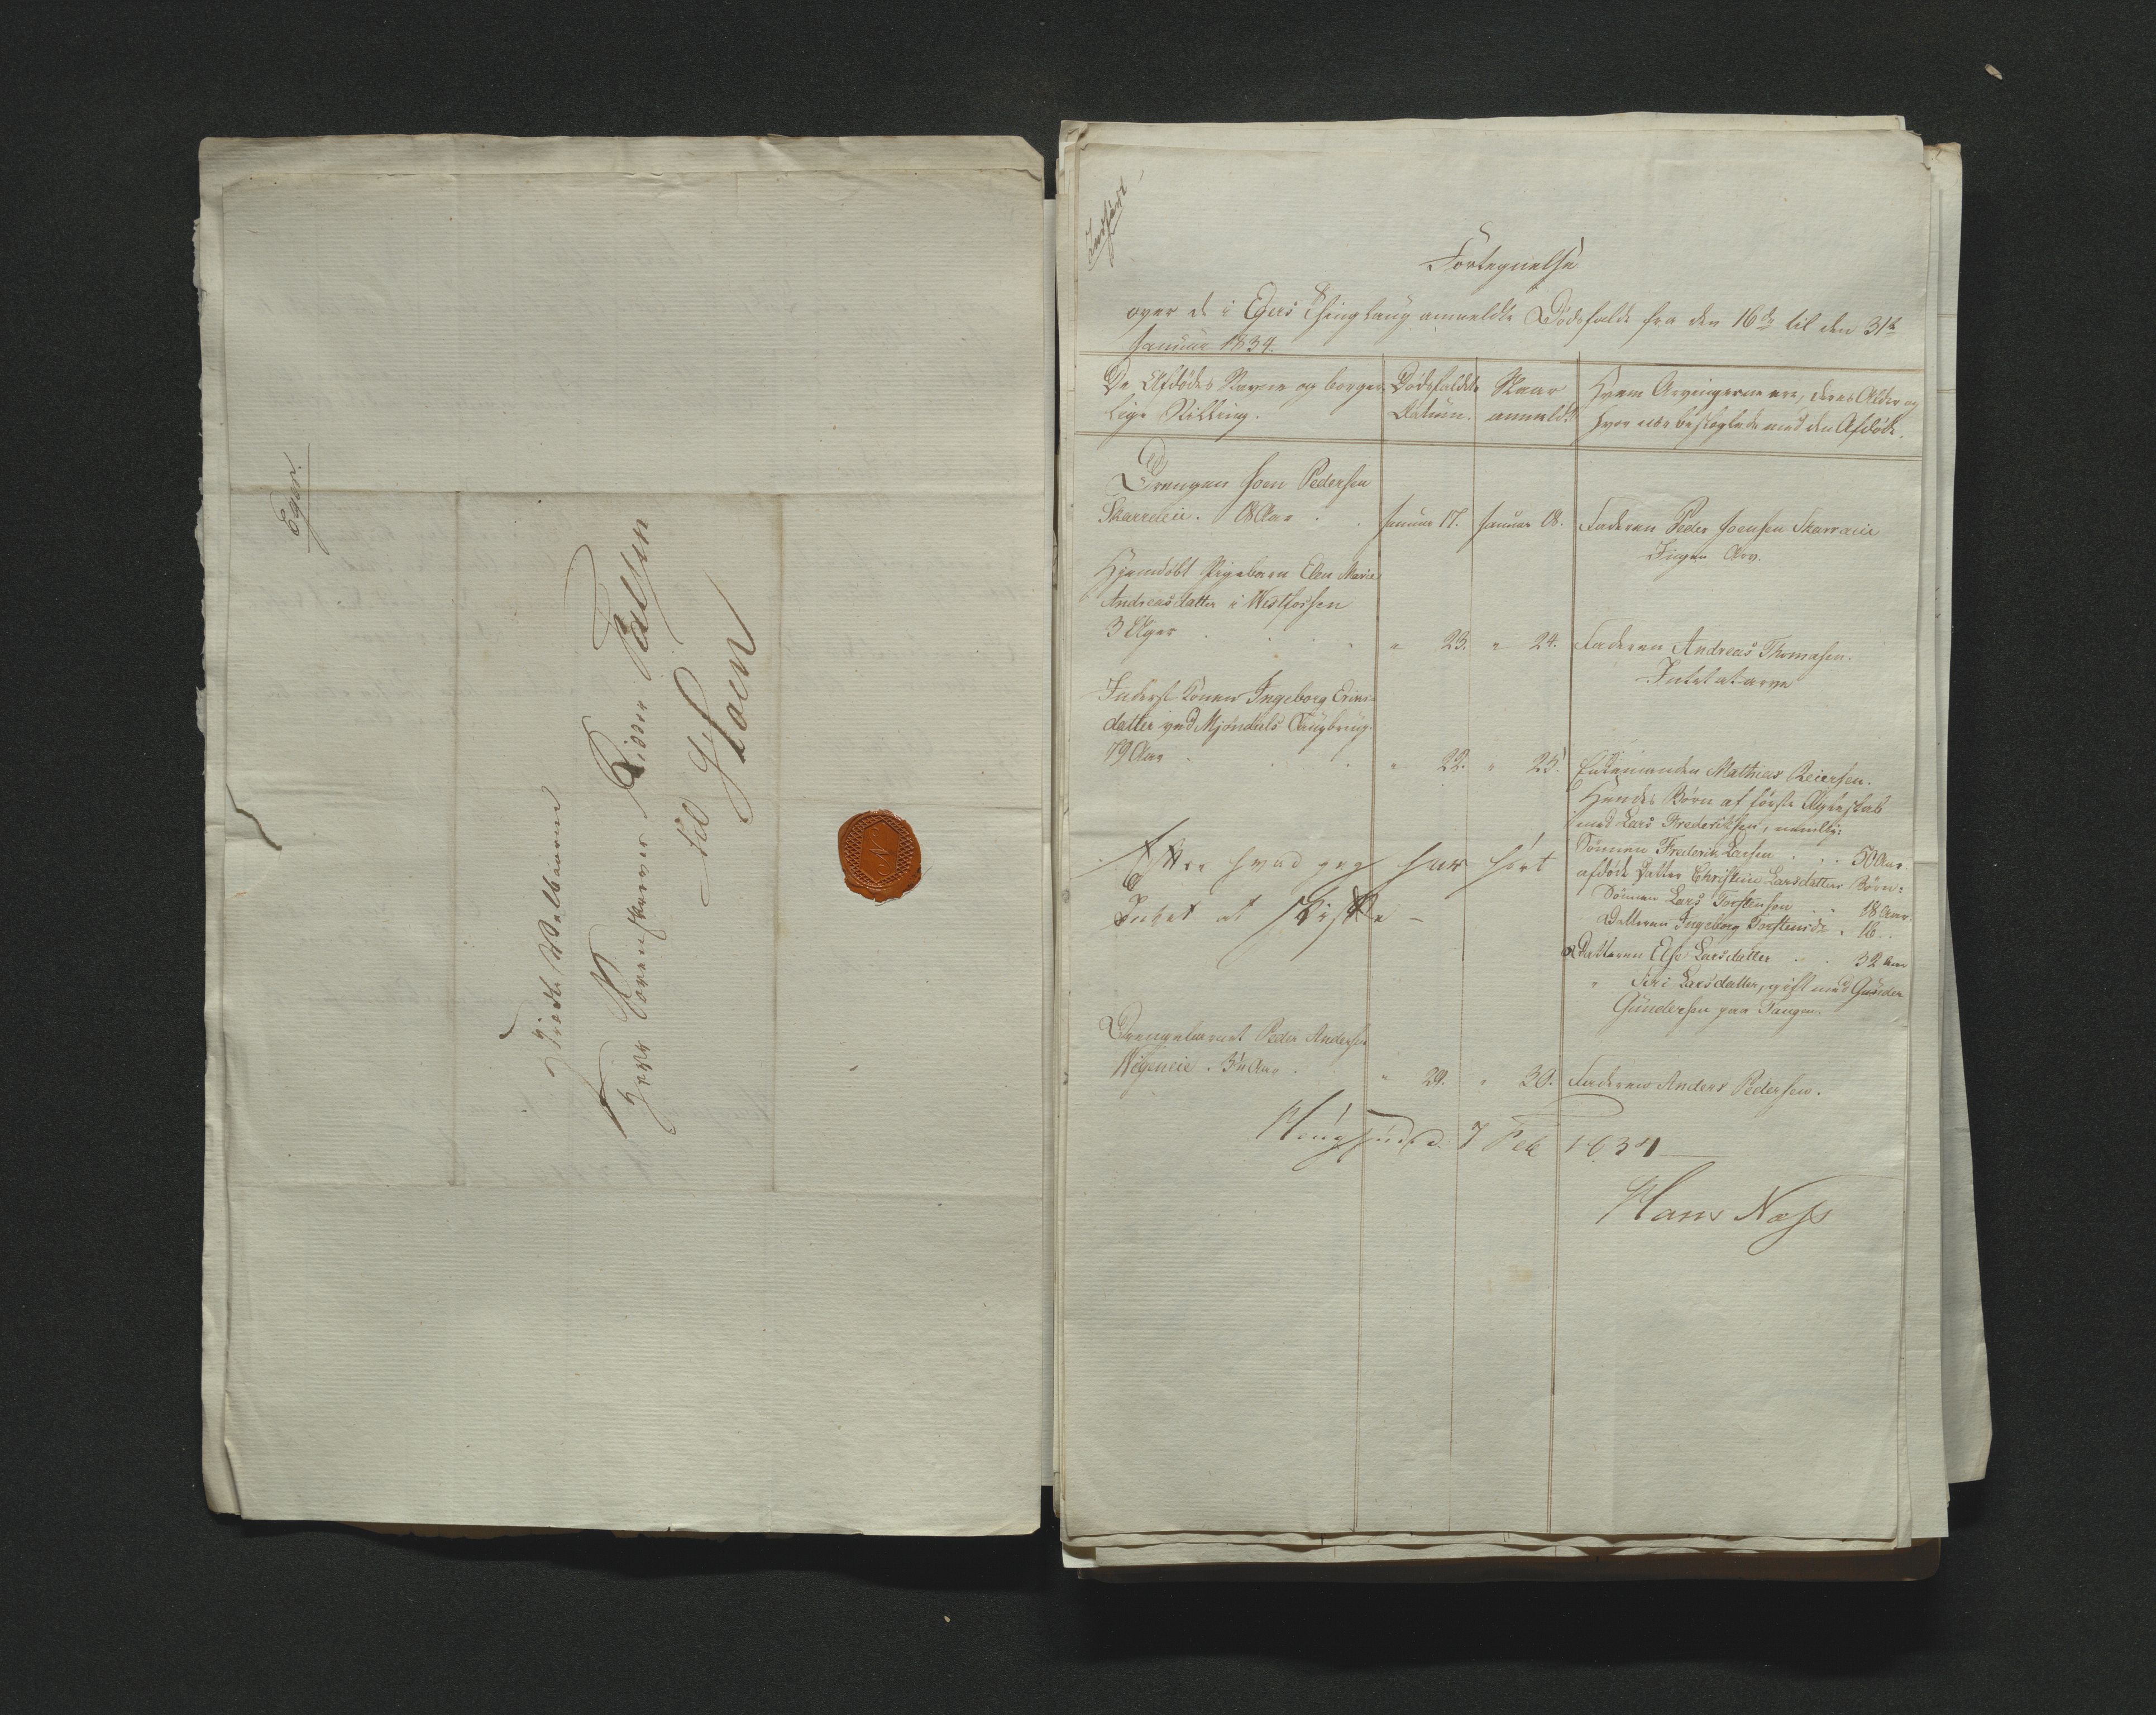 Eger.
Høiædle Velbaarne
Herr Sorenskriver Ridder Paulsen
til
Hoen
N
Indført
Fortegnelse
over de i Egers Thinglaug anmeldte Dødsfalde fra den 16de til den 31te
Januar 1834.
De Afdødes Navne og borger-
lige Stilling.
Dødsfaldets
Datum.
Naar
anmeldt.
Hvem Arvingerne ere, deres Alder og
hvor nær beslægtede med den Afdøde.
Drengen Joen Pedersen
Skarreeie. 18 Aar . . Januar 17. Januar 18. Faderen Peder Joensen Skarreeie
Ingen Arv.
Hjemdøbt Pigebarn Elen Marie
Andreasdatter i Westfossen
3 Uger . . . . " 23. " 24. Faderen Andreas Thomasen.
Intet at arve
Inderst Konen Ingeborg Erics-
datter ved Mjøndals Saugbrug.
79 Aar . . . " 22. " 25. Enkemanden Mathias Reiersen.
Hendes Børn af første Ægteskab
med Lars Frederiksen, nemlig:
Sønnen Frederik Larsen . . . 50 Aar.
afdøde Datter Christine Larsdatters Børn:
Sønnen Lars Torstensen . . 18 Aar
Datteren Ingeborg Torstensd. . 16 .
Datteren Else Larsdatter . . 32 Aar
" Siri Larsdatter, gift med Gunder
Gundersen paa Tangen.
Efter hvad jeg har hørt
Intet at skifte –
Drengebarnet Peder Andersen
Wegeneie . 3¼ Aar . " 29. " 30. Faderen Anders Pedersen.
Hougsund d. 7 Feb 1834
Hans Næss